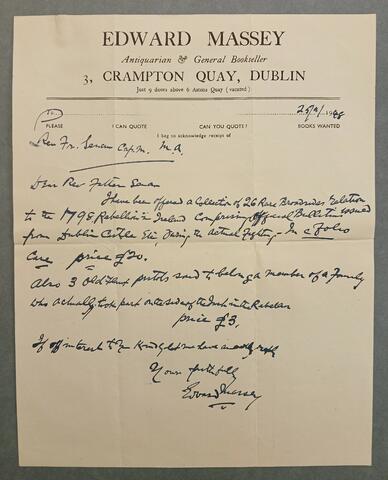 EDWARD MASSEY
Antiquarian & General Bookseller
3, CRAMPTON QUAY, DUBLIN
Just 9 doors above 6 Astons Quay (vacated)
To 25/9/1948
PLEASE I CAN QUOTE CAN YOU QUOTE? BOOKS WANTED
I beg to acknowledge receipt of
Rev Fr. Senan Cap. M. A.
Dear Rev Father Senan
I have been offered a Collection of 26 Rare Broadsides Relation
to the 1798 Rebellion in Ireland Comprising Official Bulletins issued
from Dublin Castle Etc, During the Actual Fighting - In a Folio
Case price £20.
Also 3 old Flint pistols said to belong a member of a Family
who actually took part on the side of the Irish in the Rebellion
price £3.
If of interest to you Kindly let me have an early reply
Yours faithfully
Edward Massey